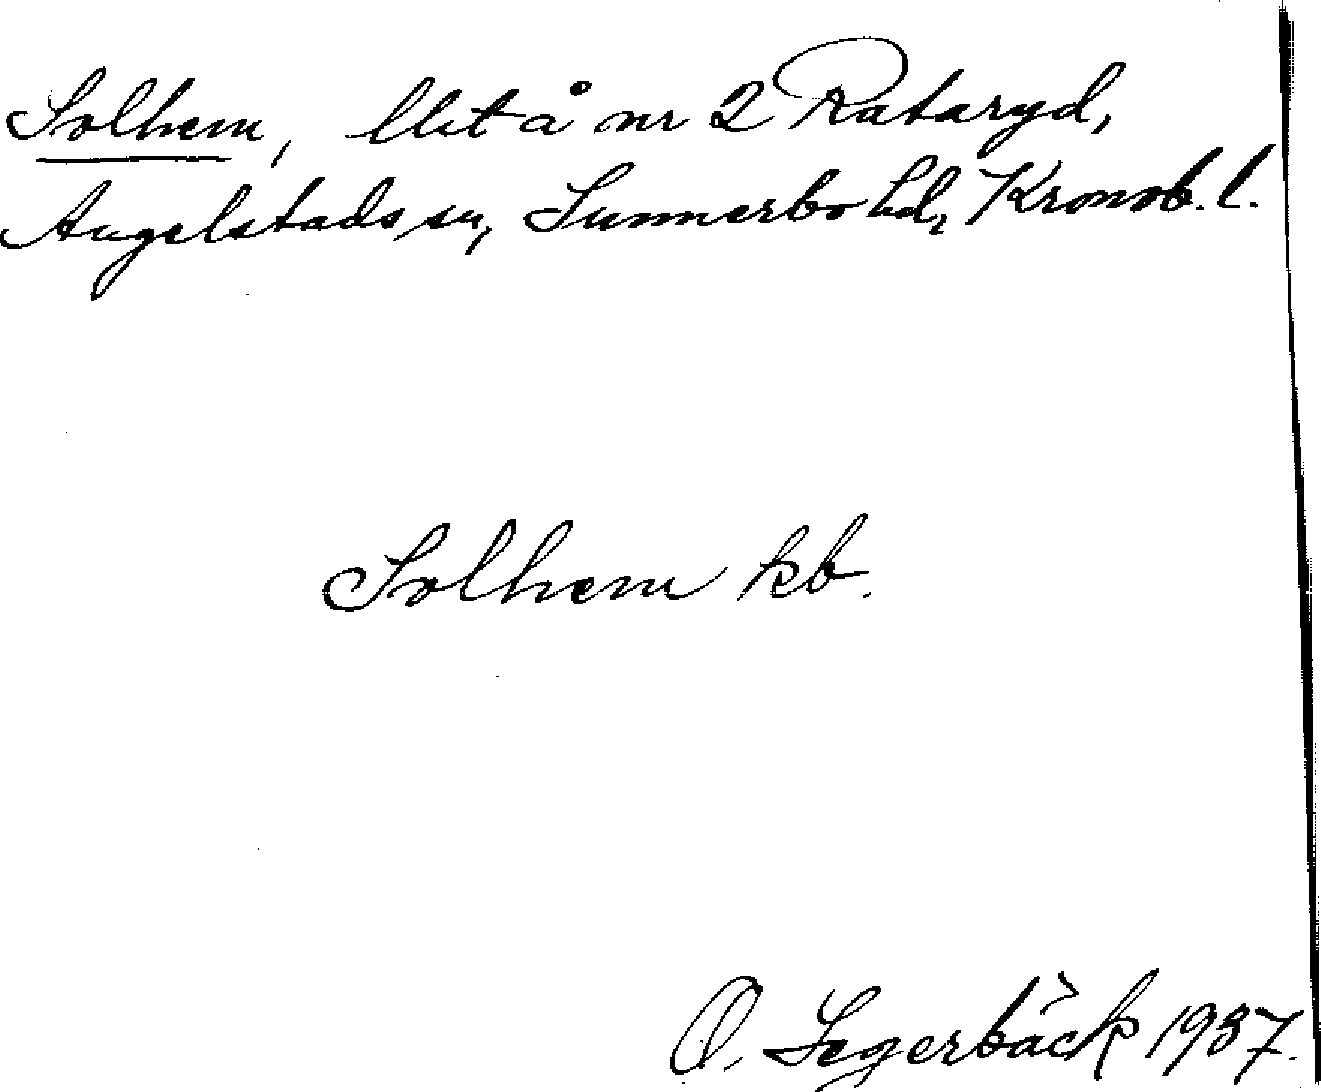 Solhem, lht å nr 2 Rataryd,
Angelstads sn, Sunnerbo hd, Kronob. l.
Solhem kb.
O. Segerbäck 1937.